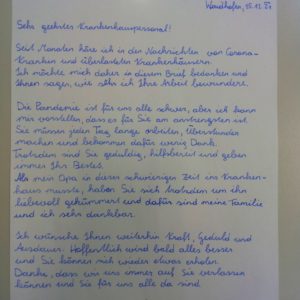 Waidhofen, 15.12.21
Sehr geehrtes Krankenhauspersonal!
Seit Monaten höre ich in den Nachrichten von Corona-
Kranken und überlasteten Krankenhäusern.
Ich möchte mich daher in diesem Brief bedanken und
Ihnen sagen, wie sehr ich Ihre Arbeit bewundere.
Die Pandemie ist für uns alle schwer, aber ich kann
mir vorstellen, dass es für Sie am anstrengendsten ist.
Sie müssen jeden Tag lange arbeiten, Überstunden
machen und bekommen dafür wenig Dank.
Trotzdem sind Sie geduldig, hilfsbereit und geben
immer Ihr Bestes.
Als mein Opa in dieser schwierigen Zeit ins Kranken-
haus musste, haben Sie sich trotzdem um ihn
liebevoll gekümmert und dafür sind meine Familie
und ich sehr dankbar.
Ich wünsche Ihnen weiterhin Kraft, Geduld und
Ausdauer. Hoffentlich wird bald alles besser
und Sie können sich wieder etwas erholen.
Danke, dass wir uns immer auf Sie verlassen
können und Sie für uns alle da sind.